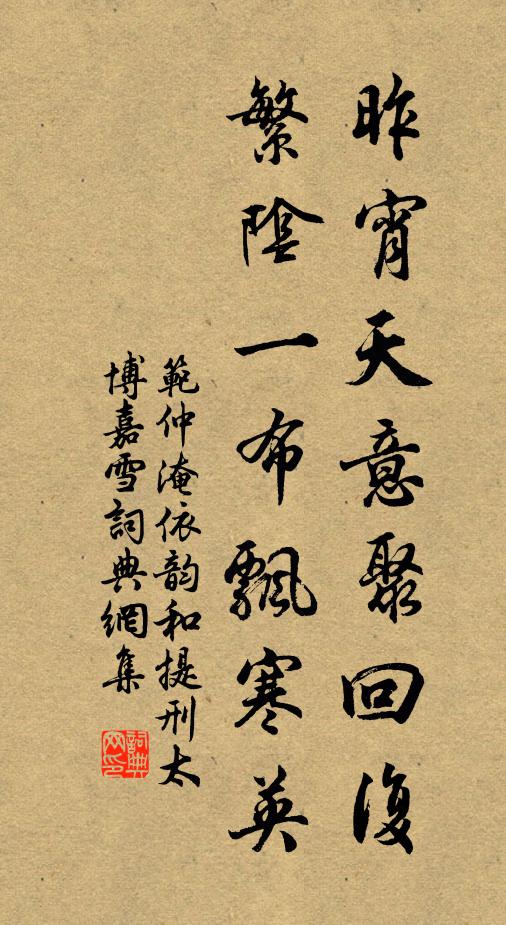 昨宵天意聚回復
繁陰一布飄寒英
範仲淹依韵和提刑太
博嘉雪詞典網集
詞典网印